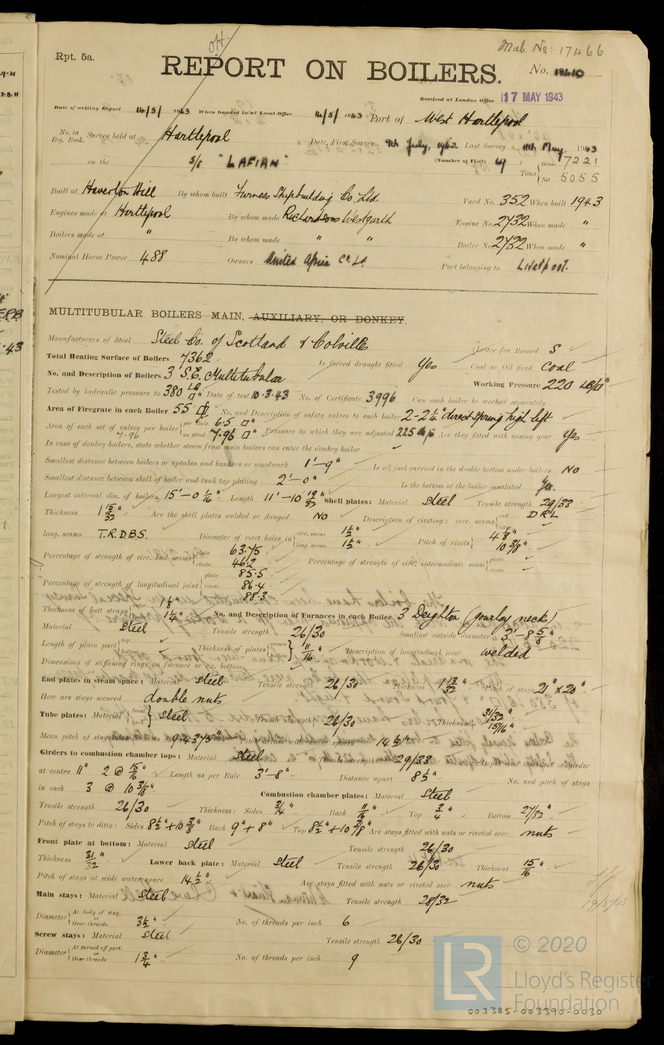 Rpt. 5a.
Mab. No: 17466
REPORT ON BOILERS.
No. 18610
Received at London Office 17 MAY 1943
Date of writing Report 14/5/1943 When handed in at Local Office 14/5/1943 Port of West Hartlepool
No. in Reg. Book. Survey held at Hartlepool Date, First Survey 9th July, 1942 Last Survey 11th May, 1943
on the S/S "LAFIAN" (Number of Visits 49) Gross 7221
Tons Net 5055
Built at Haverton Hill By whom built Furness Shipbuilding Co. Ltd. Yard No. 352 When built 1943
Engines made at Hartlepool By whom made Richardsons Westgarth Engine No. 2732 When made "
Boilers made at " By whom made " " Boiler No. 2732 When made "
Nominal Horse Power 488 Owners United Africa Co. Ld. Port belonging to Liverpool.
MULTITUBULAR BOILERS MAIN, AUXILIARY, OR DONKEY.
Manufacturers of Steel Steel Co. of Scotland & Colvilles (Letter for Record S
Total Heating Surface of Boilers 7362 Is forced draught fitted Yes Coal or Oil fired Coal
No. and Description of Boilers 3 S.E. Multitubular Working Pressure 220 lbs/□"
Tested by hydraulic pressure to 380 lb/□" Date of test 10.3.43 No. of Certificate 3996 Can each boiler be worked separately
Area of Firegrate in each Boiler 55 No. and Description of safety valves to each boiler 2-2½" direct spring high lift
Area of each set of valves per boiler per Rule 6.5 □" as fitted 7.96 □" Pressure to which they are adjusted 225 Are they fitted with easing gear Yes
7.96
In case of donkey boilers, state whether steam from main boilers can enter the donkey boiler
Smallest distance between boilers or uptakes and bunkers or woodwork 1'-9" Is oil fuel carried in the double bottom under boilers No
Smallest distance between shell of boiler and tank top plating 2'-0" Is the bottom of the boiler insulated Yes
Largest internal dia. of boilers 15'-0 1/16" Length 11'-10 19/32" Shell plates: Material Steel Tensile strength 29/33
Thickness 1 15/32" Are the shell plates welded or flanged No Description of riveting: circ. seams D R L
long. seams T.R.D.B.S. Diameter of rivet holes in circ. seams 1½" long. seams 1½" Pitch of rivets 4 1/8" 10 3/8"
Percentage of strength of circ. end seams 63.75 46.2 Percentage of strength of circ. intermediate seam
Percentage of strength of longitudinal joint 85.5 86.4 88.3
Thickness of butt straps 1 1/8" 1¼" No. and Description of Furnaces in each Boiler 3 Deighton (gourlay neck)
Material Steel Tensile strength 26/30 Smallest outside diameter 3'-8 5/8"
Length of plain part Thickness of plates 11/16" Description of longitudinal joint welded
Dimensions of stiffening rings on furnace or c.c. bottom
End plates in steam space: Material Steel Tensile strength 26/30 Thickness 1 13/32" Pitch of stays 21" x 20"
How are stays secured double nuts
Tube plates: Material Steel Tensile strength 26/30 Thickness 31/32" 15/16"
Mean pitch of stay tubes 9.4375" 14½"
Girders to combustion chamber tops: Material Steel Tensile strength 29/33
at centre 11" 2 @ 15/16" Length as per Rule 3'-8" Distance apart 8½" No. and pitch of stays
in each 3 @ 10 3/8" Combustion chamber plates: Material Steel
Tensile strength 26/30 Thickness: Sides 3/4" Back 11/16" Top 3/4" Bottom 27/32"
Pitch of stays to ditto: Sides 8½" x 10 3/8" Back 9" x 8" Top 8½" x 10 3/8" Are stays fitted with nuts or riveted over nuts
Front plate at bottom: Material Steel Tensile strength 26/30
Thickness 31/32" Lower back plate: Material Steel Tensile strength 26/30 Thickness 15/16"
Pitch of stays at wide water space 14½" Are stays fitted with nuts or riveted over nuts
Main stays: Material Steel Tensile strength 28/32
Diameter At body of stay, or Over threads 3½" No. of threads per inch 6
Screw stays: Material Steel Tensile strength 26/30
Diameter At turned off part, or Over threads 1¾" No. of threads per inch 9
© 2020
LR Lloyd's Register
Foundation
003385-003390-0030